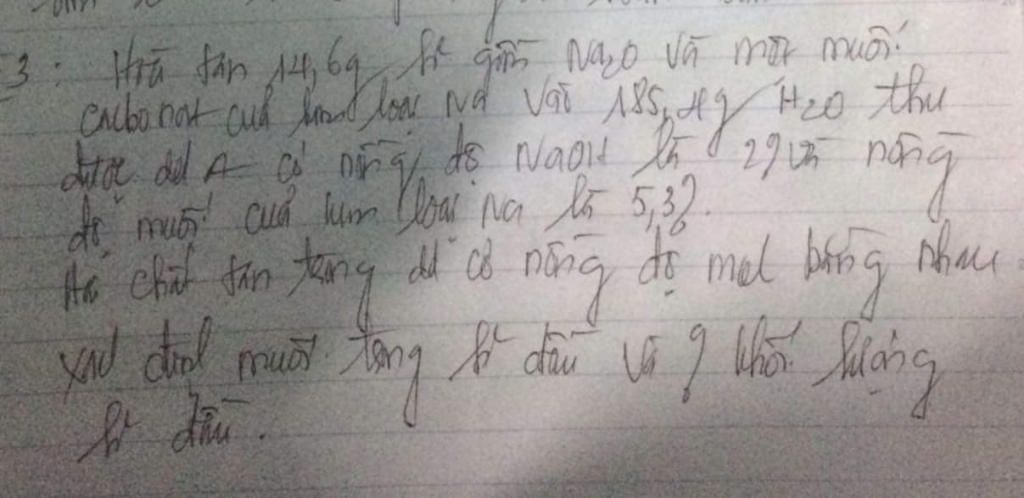 3: Hoà tan 14,6g h² gồm Na2O và một muối
cacbonat của kim loại Na vào 185,4g H2O thu
được dd A có nồng độ NaOH là 2% và nồng
độ muối của kim loại Na là 5,3%.
Hai chất tan trong dd có nồng độ mol bằng nhau
xác định muối trong h² đầu và % khối lượng
h² đầu.